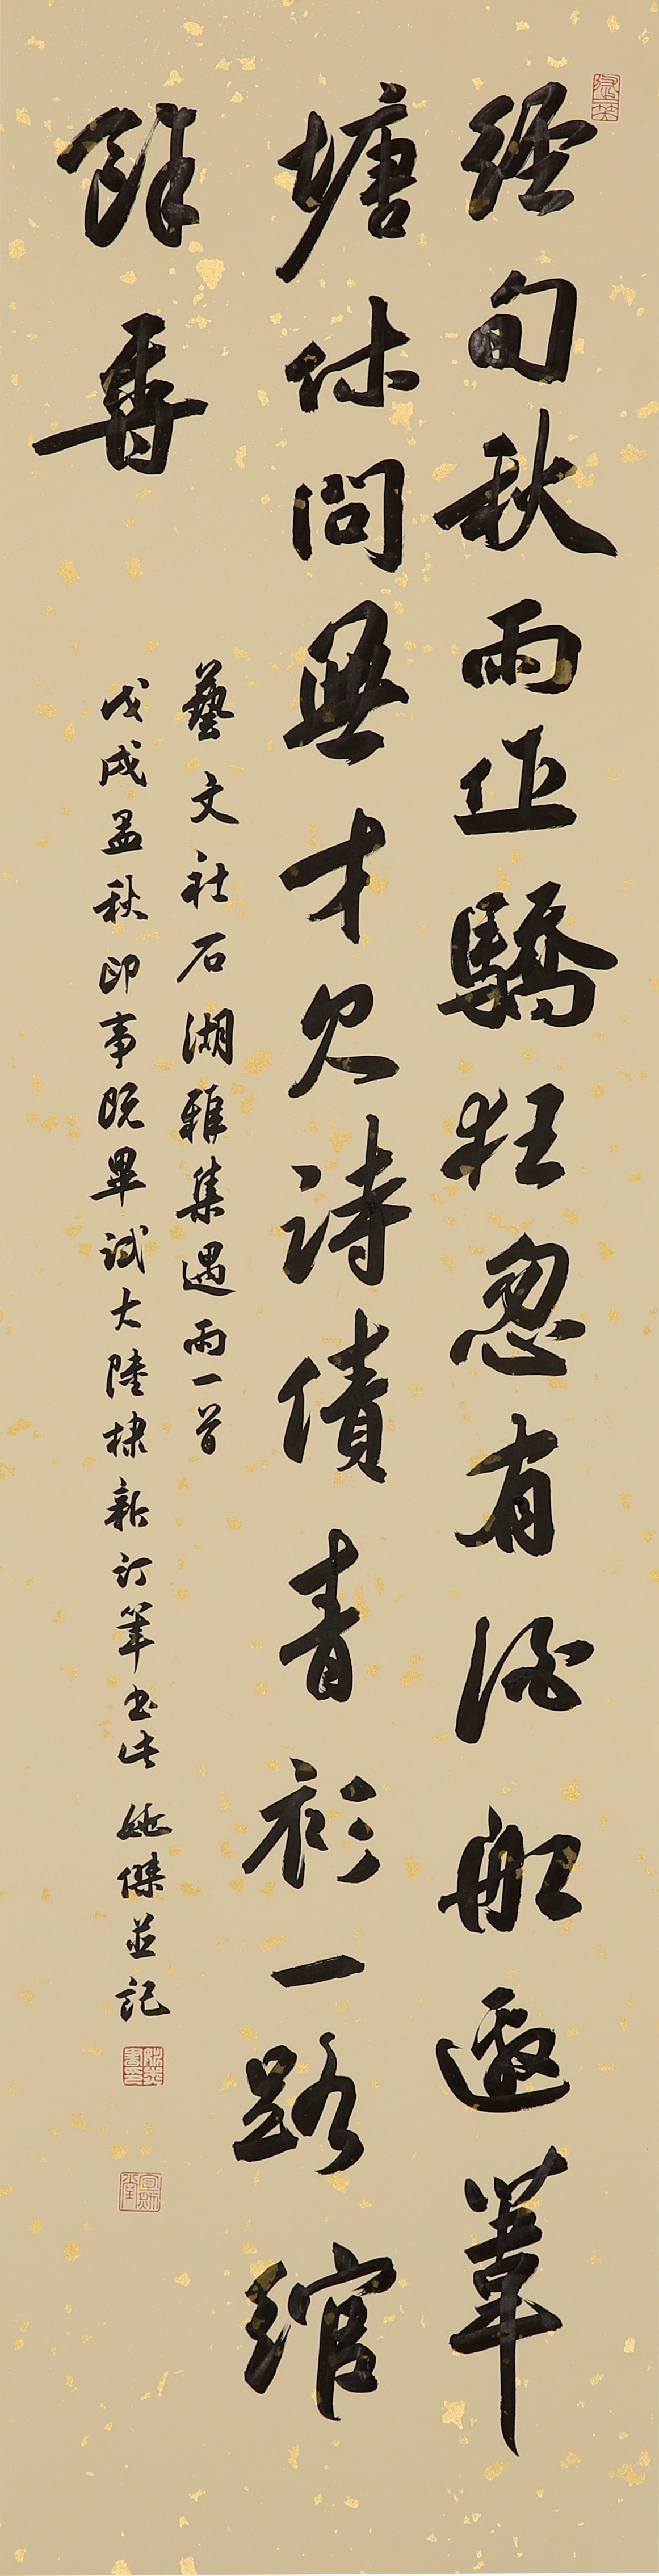 經旬秋雨作驕狂忽有酒船邀葦
塘休問與才欠詩債青衫一路綰
餘香
藝文社石湖雅集遇雨一首
戊戌孟秋印事既畢試大陸棣新訂筆書此 姚傑並記